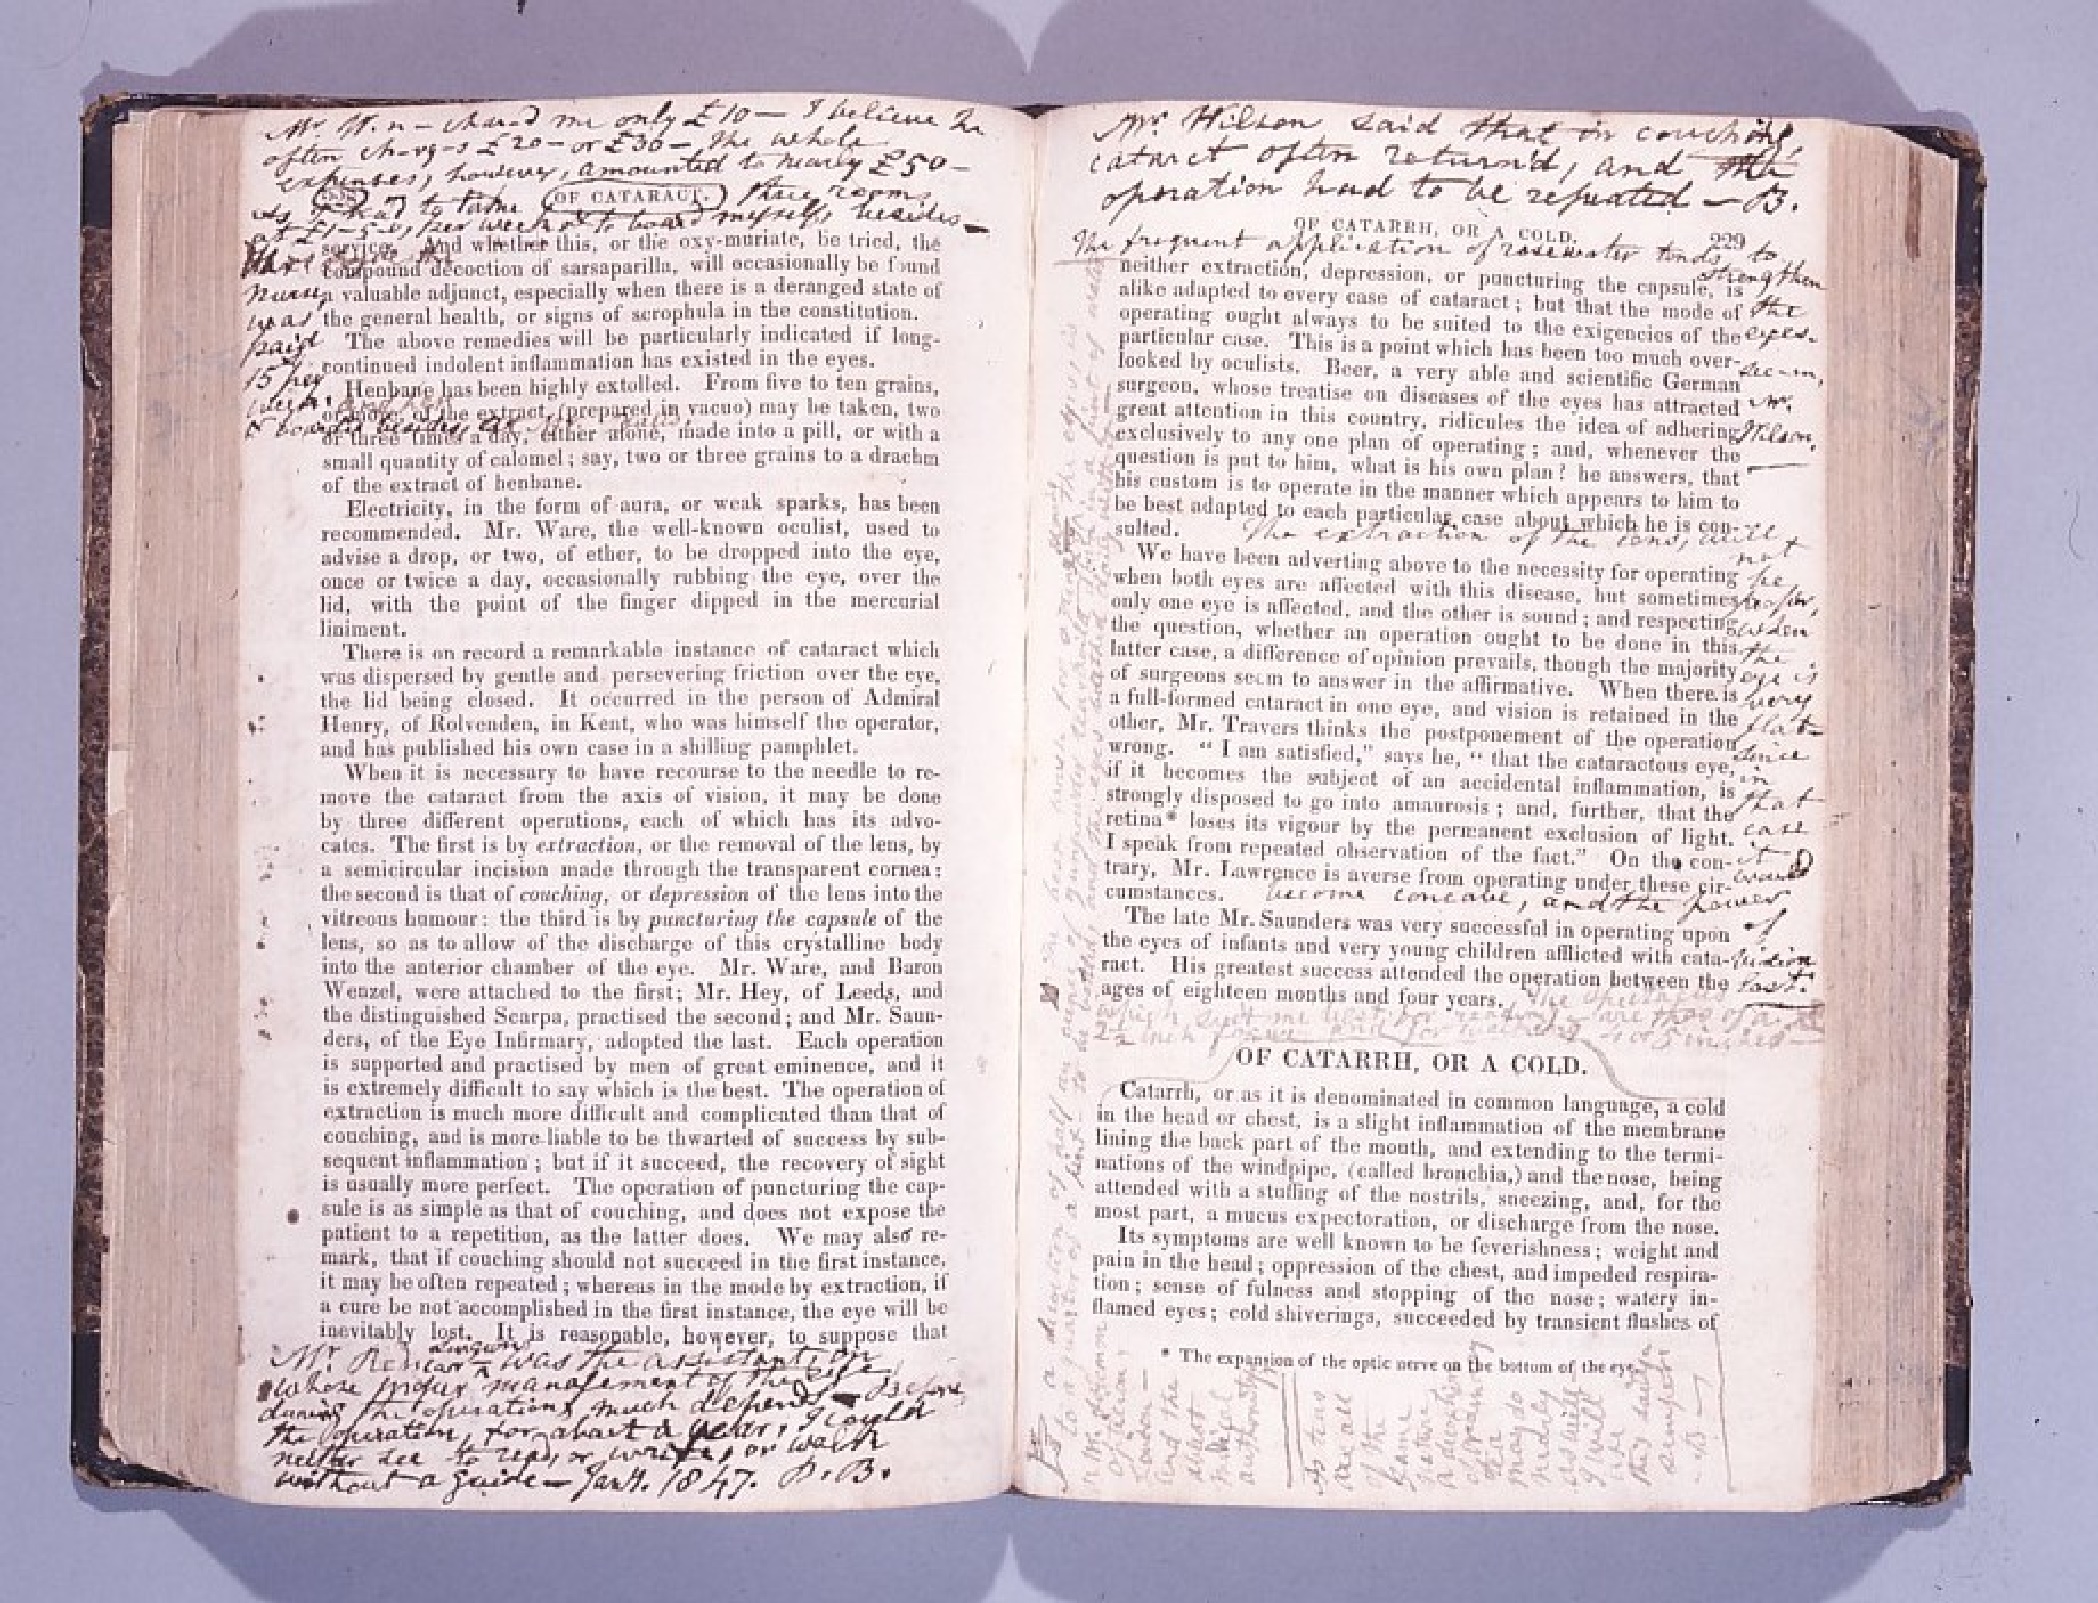 Mr. W.n - cha-d me only £10 - I believe he
often ch-rg-s £20 - or £30 - the whole
expenses, however, amounted to nearly £50 -
OF CATARACT.
as I had to take three rooms
at £1-5-0, per week & to board myself, besides -
the
nurse
was
paid
15 per
week.
& board besides, at
service. And whether this, or the oxy-muriate, be tried, the
compound decoction of sarsaparilla, will occasionally be found
a valuable adjunct, especially when there is a deranged state of
the general health, or signs of scrophula in the constitution.
The above remedies will be particularly indicated if long-
continued indolent inflammation has existed in the eyes.
Henbane has been highly extolled. From five to ten grains,
or more, of the extract, (prepared in vacuo) may be taken, two
or three times a day, either alone, made into a pill, or with a
small quantity of calomel; say, two or three grains to a drachm
of the extract of henbane.
Electricity, in the form of aura, or weak sparks, has been
recommended. Mr. Ware, the well-known oculist, used to
advise a drop, or two, of ether, to be dropped into the eye,
once or twice a day, occasionally rubbing the eye, over the
lid, with the point of the finger dipped in the mercurial
liniment.
There is on record a remarkable instance of cataract which
was dispersed by gentle and persevering friction over the eye,
the lid being closed. It occurred in the person of Admiral
Henry, of Rolvenden, in Kent, who was himself the operator,
and has published his own case in a shilling pamphlet.
When it is necessary to have recourse to the needle to re-
move the cataract from the axis of vision, it may be done
by three different operations, each of which has its advo-
cates. The first is by extraction, or the removal of the lens, by
a semicircular incision made through the transparent cornea:
the second is that of couching, or depression of the lens into the
vitreous humour: the third is by puncturing the capsule of the
lens, so as to allow of the discharge of this crystalline body
into the anterior chamber of the eye. Mr. Ware, and Baron
Wenzel, were attached to the first; Mr. Hey, of Leeds, and
the distinguished Scarpa, practised the second; and Mr. Saun-
ders, of the Eye Infirmary, adopted the last. Each operation
is supported and practised by men of great eminence, and it
is extremely difficult to say which is the best. The operation of
extraction is much more difficult and complicated than that of
couching, and is more liable to be thwarted of success by sub-
sequent inflammation; but if it succeed, the recovery of sight
is usually more perfect. The operation of puncturing the cap-
sule is as simple as that of couching, and does not expose the
patient to a repetition, as the latter does. We may also re-
mark, that if couching should not succeed in the first instance,
it may be often repeated; whereas in the mode by extraction, if
a cure be not accomplished in the first instance, the eye will be
inevitably lost. It is reasonable, however, to suppose that
surgeon
Mr. was the assistant, on
whose proper management of the eye
during the operation, much depends - Before
the operation, for about a year, I could
neither see to read, or write, or walk
without a guide - Jany. 1847. B. B.
Mr. Wilson said that in couching,
cataract often return'd, and the
operation had to be repeated - B.
OF CATARRH, OR A COLD.
229
The frequent application of rosewater tends to
strengthen
the
eyes.
Mr.
Wilson.
neither extraction, depression, or puncturing the capsule, is
alike adapted to every case of cataract; but that the mode of
operating ought always to be suited to the exigencies of the
particular case. This is a point which has been too much over-
looked by oculists. Beer, a very able and scientific German
surgeon, whose treatise on diseases of the eyes has attracted
great attention in this country, ridicules the idea of adhering
exclusively to any one plan of operating; and, whenever the
question is put to him, what is his own plan? he answers, that
his custom is to operate in the manner which appears to him to
be best adapted to each particular case about which he is con-
sulted.
The extraction of the lens, will
not
be
proper,
when
the
eye is
very
flat
since
in
that
case
it
would
become concave, and the power
of
vision
lost.
We have been adverting above to the necessity for operating
when both eyes are affected with this disease, but sometimes
only one eye is affected, and the other is sound; and respecting
the question, whether an operation ought to be done in this
latter case, a difference of opinion prevails, though the majority
of surgeons seem to answer in the affirmative. When there is
a full-formed cataract in one eye, and vision is retained in the
other, Mr. Travers thinks the postponement of the operation
wrong. " I am satisfied," says he, " that the cataractous eye,
if it becomes the subject of an accidental inflammation, is
strongly disposed to go into amaurosis; and, further, that the
retina* loses its vigour by the permanent exclusion of light.
I speak from repeated observation of the fact." On the con-
trary, Mr. Lawrence is averse from operating under these cir-
cumstances.
The late Mr. Saunders was very successful in operating upon
the eyes of infants and very young children afflicted with cata-
ract. His greatest success attended the operation between the
ages of eighteen months and four years.
The spectacles
which suit me best for reading - are thos of a
2½ inch focus and for walking 4 or 5 inches -
OF CATARRH, OR A COLD.
Catarrh, or as it is denominated in common language, a cold
in the head or chest, is a slight inflammation of the membrane
lining the back part of the mouth, and extending to the termi-
nations of the windpipe, (called bronchia,) and the nose, being
attended with a stuffing of the nostrils, sneezing, and, for the
most part, a mucus expectoration, or discharge from the nose.
Its symptoms are well known to be feverishness; weight and
pain in the head; oppression of the chest, and impeded respira-
tion; sense of fulness and stopping of the nose; watery in-
flamed eyes; cold shiverings, succeeded by transient flushes of
* The expansion of the optic nerve on the bottom of the eye.